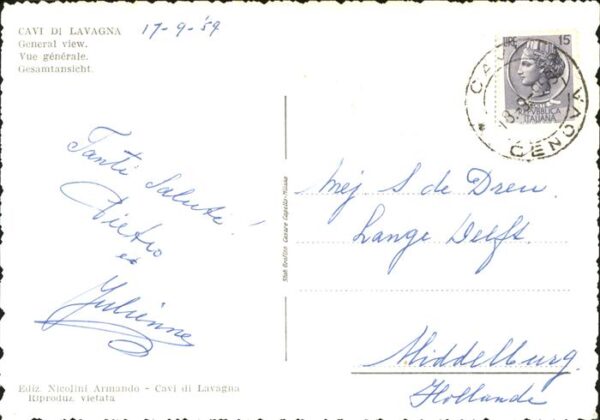 CAVI DI LAVAGNA
General view.
Vue générale.
Gesamtansicht.
17-9-'59
LIRE 15
REPUBBLICA
ITALIANA
CAVI
GENOVA
Tanti Saluti!
Pietro
et
Julienne
Stab Grafico Cesare Capello-Milano
Mej S de Dreu
Lange Delft.
Middelburg.
Hollande
Ediz. Nicolini Armando - Cavi di Lavagna
Riproduz. vietata